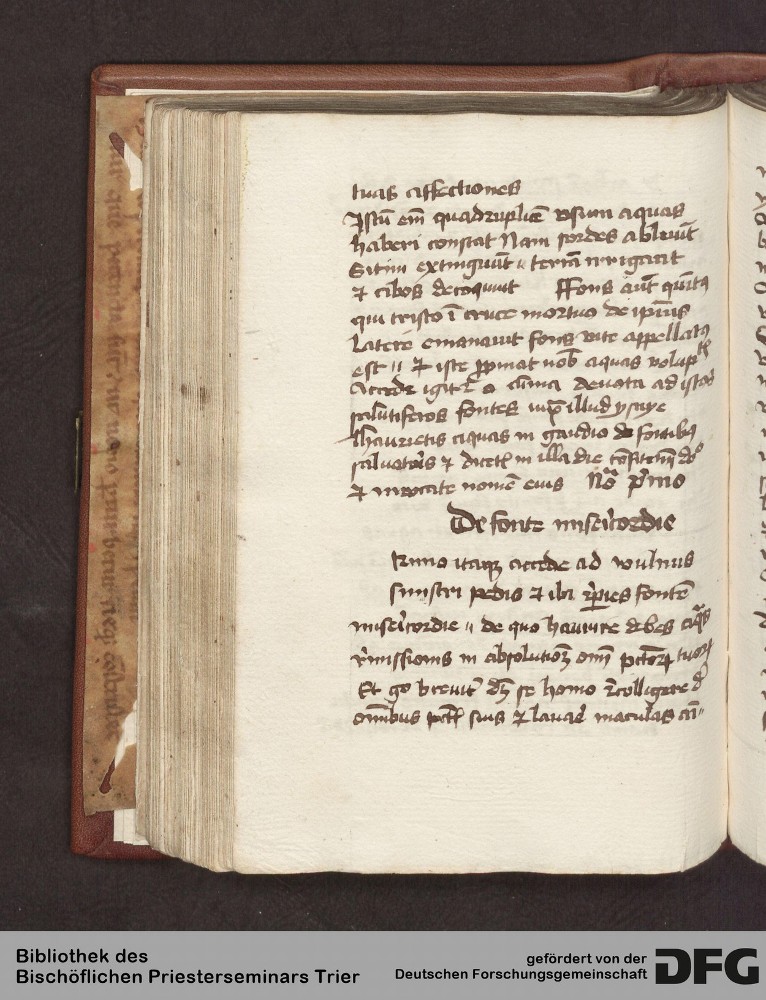 tuas affectiones
Istū em̄ quadruplicē vsum aquas
haberi constat Nam sordes abluūt
Sitim extinguūt terrā irrigant
et cibos decoquūt Ffons aūt quītꝰ
qui cristo ī cruce mortuo de ipsius
latere emanauit fons vite appellatꝰ
est et iste nob̄ aquas
Accede igitr̄ o aīma deuota ad istos
salutiferos fontes illud ysaye
Haurietis aquas in gaudio de fontibꝰ
saluatoris et dicetꝭ in illa die ꝯfitemī dō
et inuocate nomē eius Nō pͥmo
De fonte misericordie
Rimo itaqꝫ accede ad vulnus
sinistri pedis et ibi repies fontē
misericordie de quo haurire debes aqͣs
remissionis in absolutionꝫ om̄i pctōꝝ tuoꝝ
Et go breuit̄ dꝫ se homo recolligere de
omībus pctīs suis et lauad maculas aīe
Bibliothek des
Bischöflichen Priesterseminars Trier
gefördert von der
Deutschen Forschungsgemeinschaft DFG